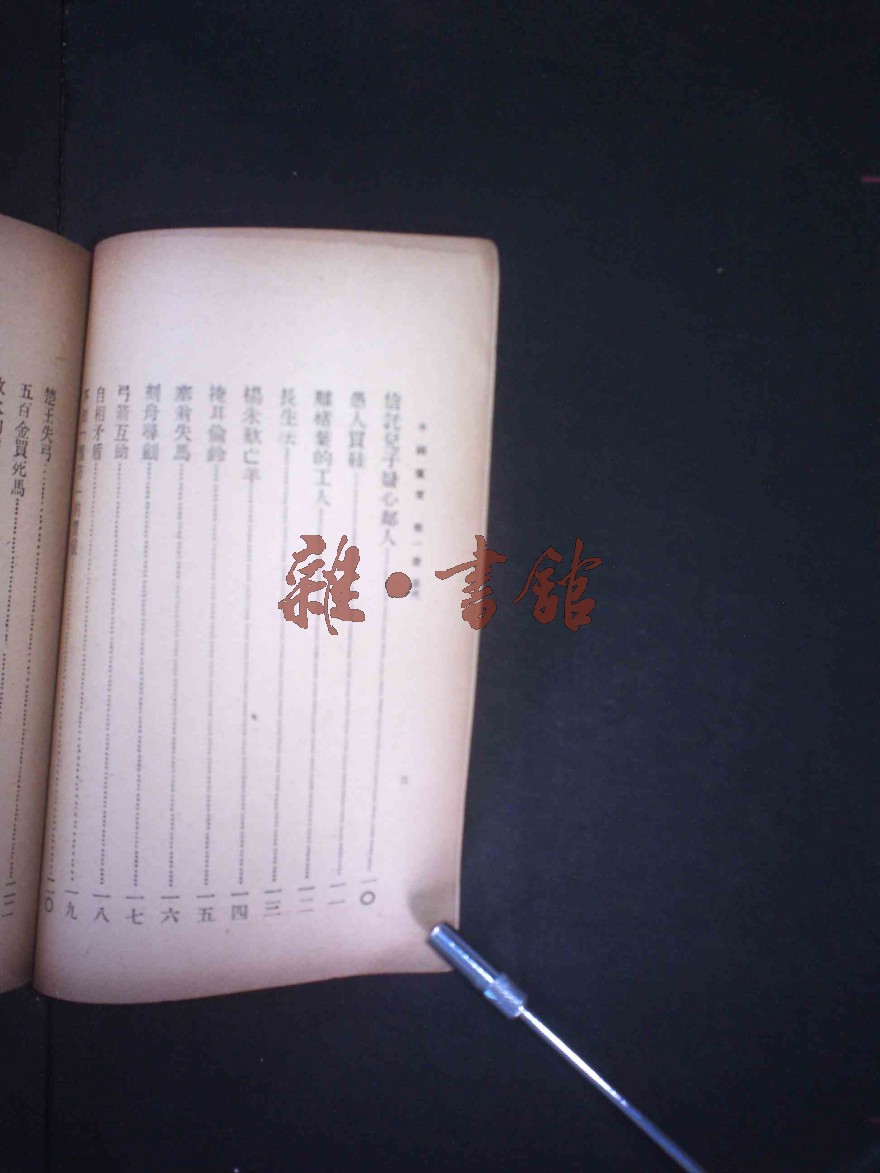 中國寓言 第一册
信託兒子疑心鄰人……一〇
愚人買鞋……一一
雕楮葉的工人……一二
長生法……一三
楊朱歎亡羊……一四
掩耳偷鈴……一五
塞翁失馬……一六
刻舟尋劍……一七
弓箭互助……一八
自相矛盾……一九
楚王失弓
五百金買死馬
雜•書館